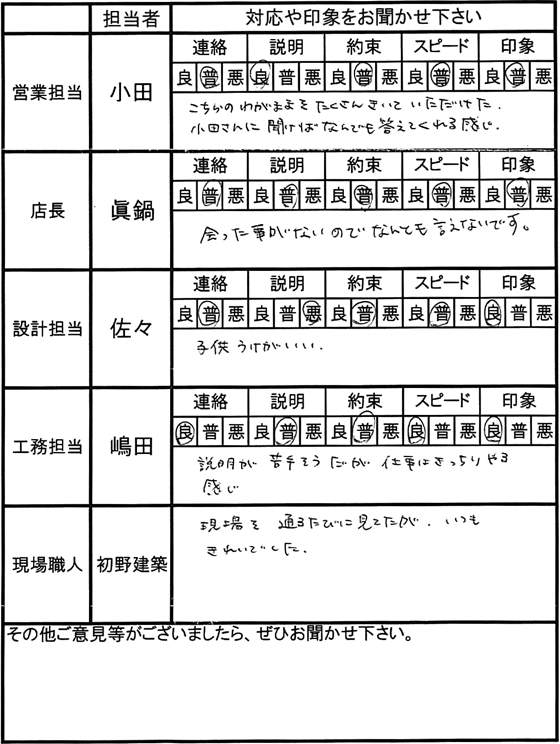 担当者 対応や印象をお聞かせ下さい
営業担当 小田
連絡 説明 約束 スピード 印象
良 普 悪 良 普 悪 良 普 悪 良 普 悪 良 普 悪
こちらのわがままをたくさんきいていただけた.
小田さんに聞けばなんでも答えてくれる感じ.
店長 眞鍋
連絡 説明 約束 スピード 印象
良 普 悪 良 普 悪 良 普 悪 良 普 悪 良 普 悪
会った事がないのでなんとも言えないです。
設計担当 佐々
連絡 説明 約束 スピード 印象
良 普 悪 良 普 悪 良 普 悪 良 普 悪 良 普 悪
子供うけがいい.
工務担当 嶋田
連絡 説明 約束 スピード 印象
良 普 悪 良 普 悪 良 普 悪 良 普 悪 良 普 悪
説明が苦手そうだが仕事はきっちりやる
感じ
現場職人 初野建築
現場を通るたびに見てたが.いつも
きれいでした.
その他ご意見等がございましたら、ぜひお聞かせ下さい。